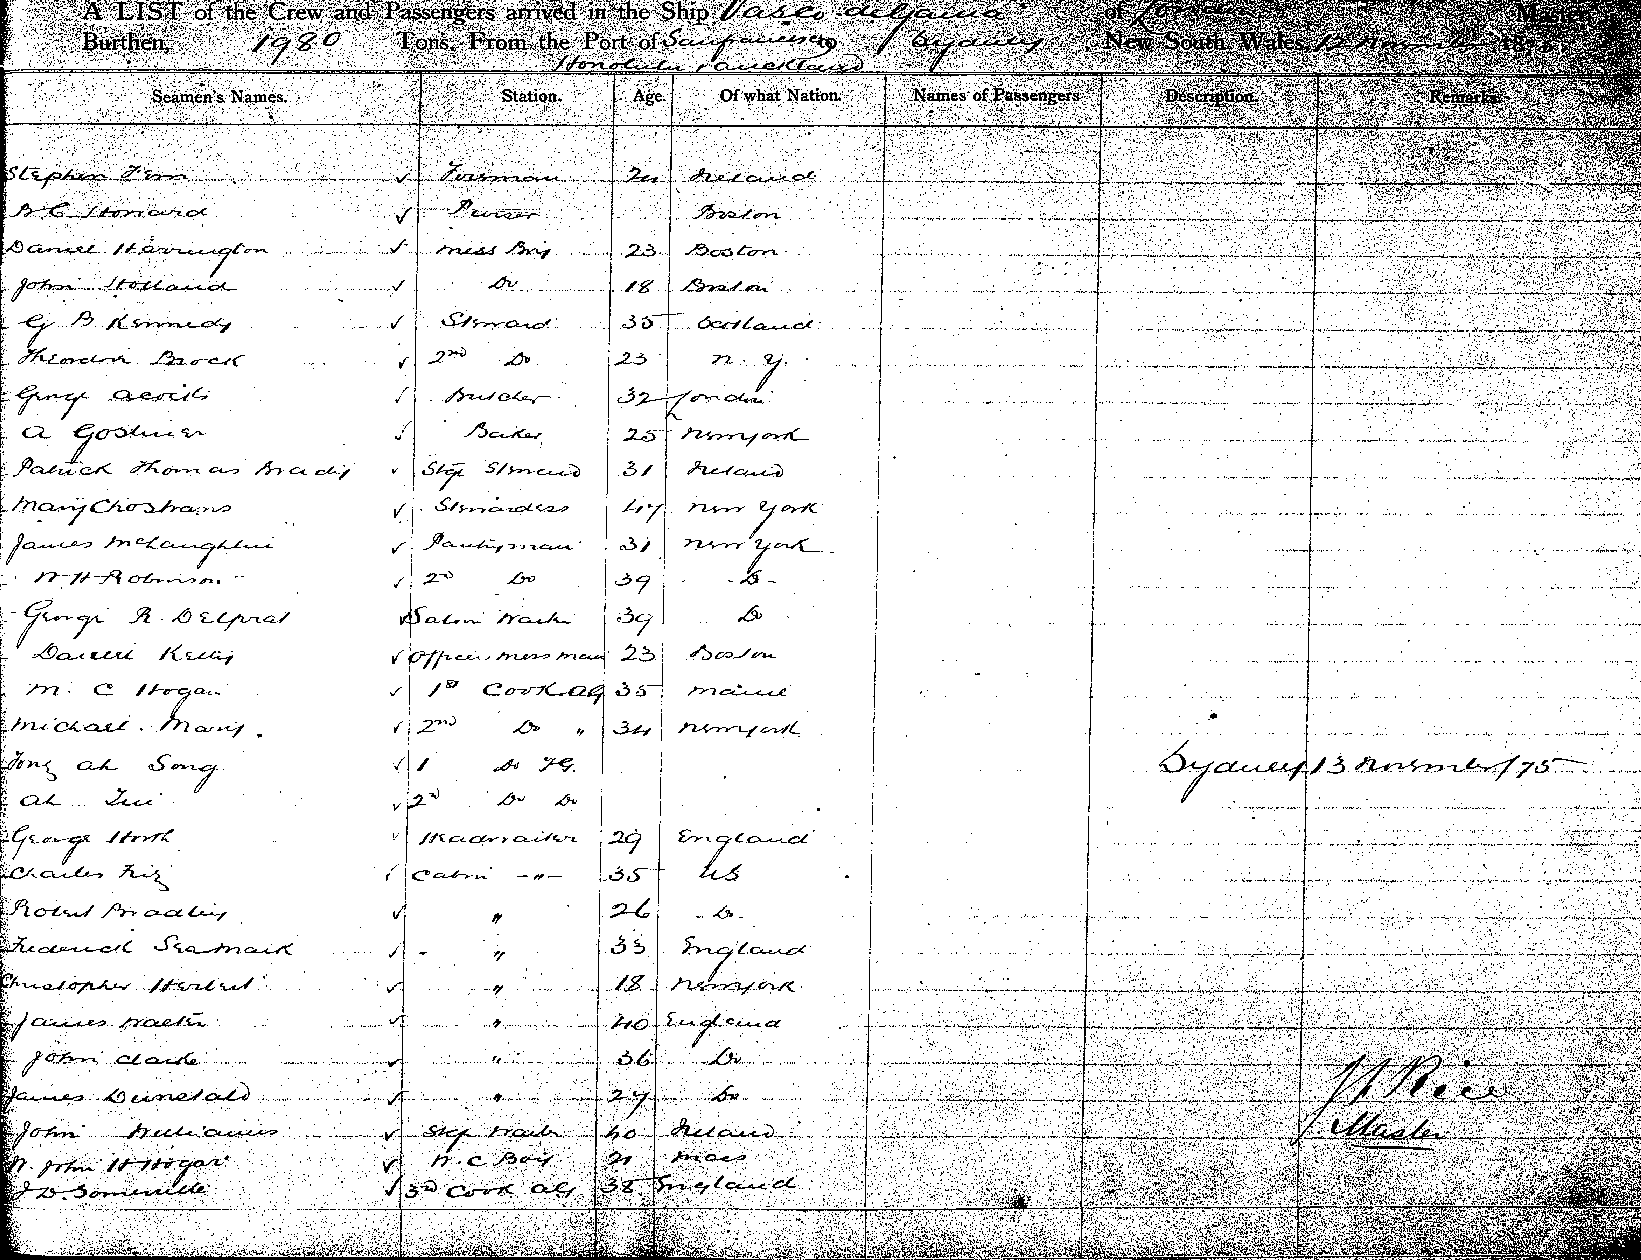 A LIST of the Crew and Passengers arrived in the Ship Vasco de Gama of London Master
Burthen, 1980 Tons, From the Port of Sanfrancisco to Sydney, New South Wales, 13 November 187
Honolulu & auckland
Seamen's Names. Station. Age. Of what Nation. Names of Passengers Description. Remarks.
Stephen Fern Foreman 24 Ireland
B C Howard Purser Boston
Daniel Harrington Mess Boy 23 Boston
John Holland Do 18 Boston
G B Kennedy Steward 35 Scotland
Theordor Brock 2nd Do 23 N. Y.
George 32 London
A Gostner Baker 25 Newyork
Patrick Thomas Brady Stge Steward 31 Ireland
Mary Stewardess 47 New York
James McLaughlin Pantryman 31 New York
W H Robinson 2d Do 39 Do
George R Delprat Saloon Waiter 39 Do
Daniel Kelly Officers Messman 23 Boston
M. C Hogan 1st Cook Aft 35 Maine
Michael Many 2nd Do " 34 Newyork
Tong ah Song 1 Do Fd.
Sydney 13 November/75
Ah 2d Do Do
George North Headwaiter 29 England
Charles Cabin -"- 35 US
Robert Bradley " 26 Do
Frederick Seamark " 33 England
Christopher Herbert " 18 Newyork
James Walter " 40 England
John Clarke " 36 Do
James Dunstald " 27 Do
J H Rice
John Williams Stge Waiter 40 Ireland
Master
W. John H Hogan W. C Boy 21 Mass
J D. Somerville 3rd Cook Aft 38 England